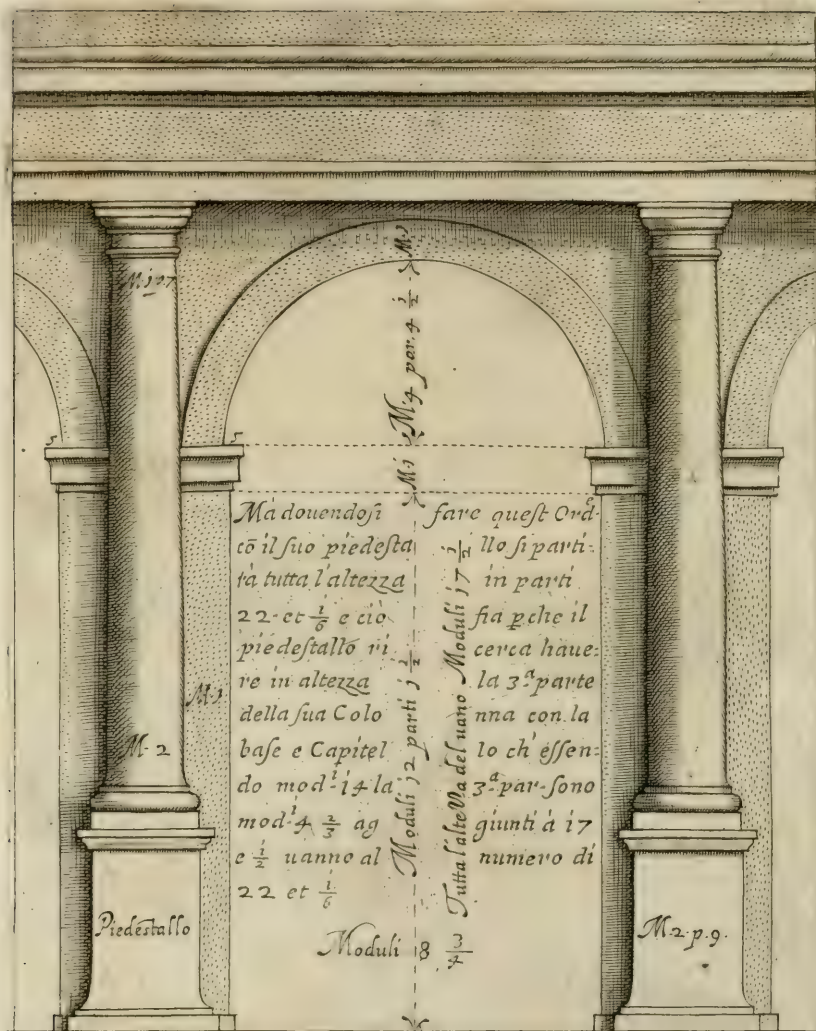 M. j
M. 4 par. 4 j/2
M. j
Mà douendosi fare quest Ord.e
cō il suo piedesta llo si parti:
rà tutta l'altezza in parti
22. et i/6 e ciò fia pche il
piedestallo ri cerca haue:
re in altezza la 3.a parte
della sua Colo nna con la
base e Capitel lo ch' essen:
do mod.i i4 la 3.a par. sono
mod.i 4 2/3 ag giunti à i7
e i/2 uanno al numero di
22 et i/6
Moduli j2 parti j j/2
Tutta l'alteza del uano Moduli j7 j/2
M. j
M. 2
Piedestallo
Moduli 8 3/4
M. 2. p. 9.